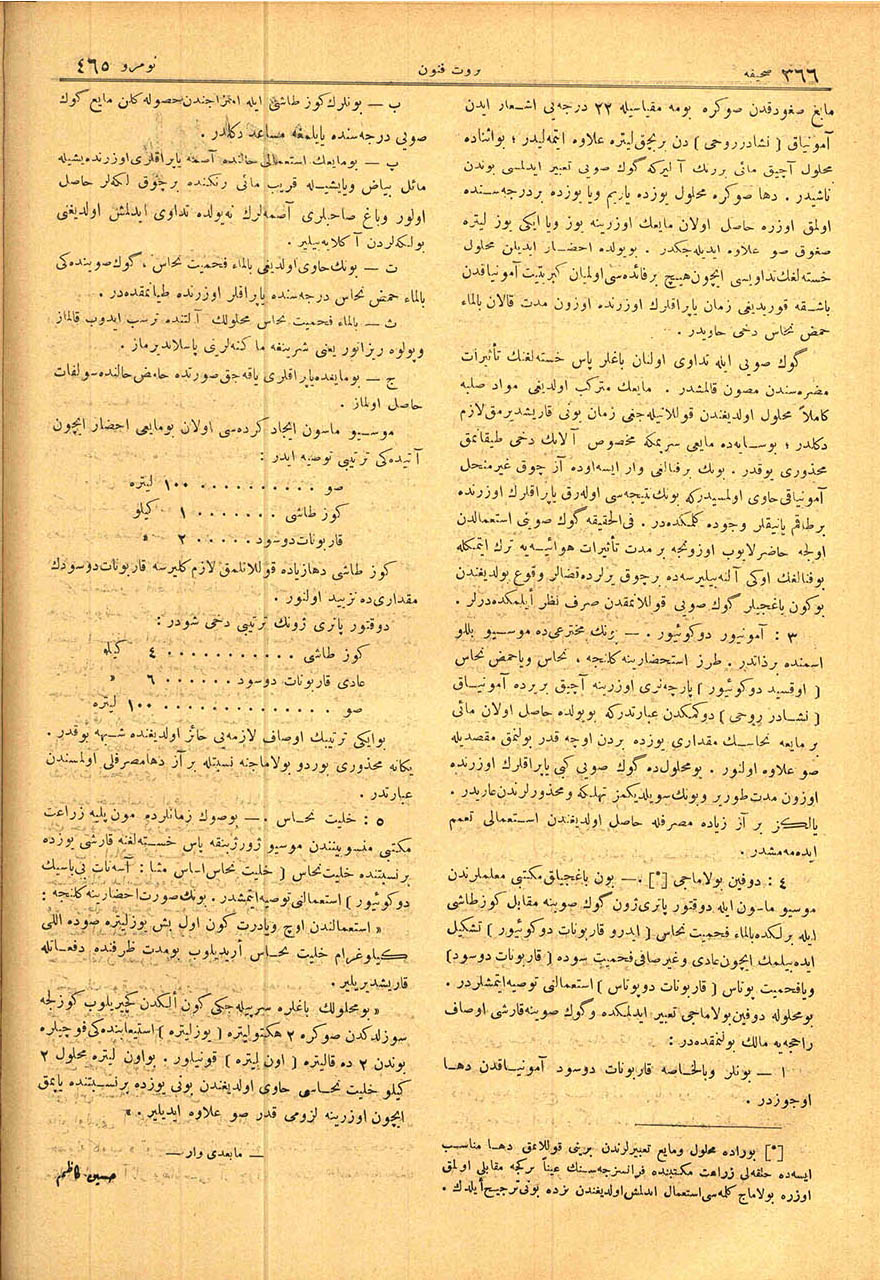 ٣٦٦ صحیفه
ثروت فنون
نومرو ٤٦٥
مایع صغودقدن صوکره بومه مقیاسیله ٢٢ درجه‌یی اشعار ایدن
آمونیاق ( نشادرروحی ) دن بربچق لیتره علاوه ایتمه‌لیدر ؛ بواثناده
محلول آچیق مائی بررنك آلیرکه گوك صویی تعبیر ایدلمسی بوندن
ناشیدر . دها صوکره محلول یوزده یاریم ویا یوزده بردرجه‌سنده
اولمق اوزره حاصل اولان مایعك اوزرینه یوز ویا ایکی یوز لیتره
صغوق صو علاوه ایدیله‌جکدر . بویولده احضار ایدیلن محلول
خسته‌لغك تداویسی ایچون هیچ برفائده‌سی اولمیان کبریتیت آمونیاقدن
باشقه قوریدیغی زمان یاپراقلرك اوزرنده اوزون مدت قالان بالماء
حمض نحاس دخی حاویدر .
گوك صویی ایله تداوی اولنان باغلر پاس خسته‌لغنك تأثیرات
مضره‌سندن مصون قالمشدر . مایعك مترکب اولدیغی مواد صلبه
کاملاً محلول اولدیغندن قوللانیله‌جغی زمان بونی قاریشدیرمق لازم
دکلدر ؛ بوسایه‌ده مایعی سرپمکه مخصوص آلاتك دخی طیقانمق
محذوری یوقدر . بونك برفنالغی وار ایسه‌اوده آز چوق غیرمنحل
آمونیاقی حاوی اولمسیدرکه بونك نتیجه‌سی اوله‌رق یاپراقلرك اوزرنده
برطاقم یانیقلر وجوده کلمکده‌در . فی‌الحقیقه گوك صوینی استعمالدن
اولجه حاضرلایوب اوزونجه بر مدت تأثیرات هوائیه‌یه ترك ایتمکله
بوفنالغك اوکی آلنه‌بیلیرسه‌ده برچوق یرلرده‌قضالر وقوع بولدیغندن
بوکون باغجیلر گوك صویی قوللانمقدن صرف نظر ایلمکده‌درلر .
٣ : آمونیور دوکوئیور . — بونك مخترعی‌ده موسیو بللو
اسمنده برذاتدر . طرز استحضارینه کلنجه ، نحاس ویاحمض نحاس
( اوقسید دوکوئیور ) پارچه‌لری اوزرینه آچیق بریرده آمونیاق
( نشادر روحی ) دوکمکدن عبارتدرکه بویولده حاصل اولان مائی
بر مایعه نحاسك مقداری یوزده بردن اوچه قدر بولنمق مقصدیله
صو علاوه اولنور . بومحلول‌ده گوك صویی کبی یاپراقلرك اوزرنده
اوزون مدت طورر وبونك سویلدیکمز تهلکه ومحذورلرندن عاریدر .
یالکز بر آز زیاده مصرفله حاصل اولدیغندن استعمالی تعمم
ایده‌مه‌مشدر .
٤ : دوفین بولاماجی [*] . — بون باغجیلق مکتبی معلملرندن
موسیو ماسون ایله دوقتور پاتری‌ژون گوك صوینه مقابل کوزطاشی
ایله برلکده بالماء فحمیت نحاس ( ایدرو قاربونات دوکوئیور ) تشکیل
ایده‌بیلمك ایچون عادی وغیرصافی فحمیت سوده ( قاربونات دوسود )
ویافحمیت پوتاس ( قاربونات دوپوتاس ) استعمالنی توصیه ایتمشلردر .
بومحلوله دوفین بولاماجی تعبیر ایدلمکده وگوك صوینه قارشی اوصاف
راجحه‌یه مالك بولنمقده‌در :
١ — بونلر وبالخاصه قاربونات دوسود آمونیاقدن دها
اوجوزدر .
[*] بوراده محلول ومایع تعبیرلرندن برینی قوللانمق دها مناسب
ایسه‌ده حلقه‌لی زراعت مکتبنده فرانسزجه‌سنك عیناً ترکجه مقابلی اولمق
اوزره بولاماج کله‌سی استعمال ایدلمش اولدیغندن بزده بونی ترجیح ایلدك .
ب — بونلرك کوز طاشی ایله امتزاجندن حصوله کلن مایع گوك
صویی درجه‌سنده یایلمغه مساعد دکلدر .
پ — بومایعك استعمالی حالنده آصمه یاپراقلری اوزرنده یشیله
مائل بیاض ویایشیله قریب مائی رنکنده برچوق لکه‌لر حاصل
اولور وباغ صاحبلری آصمه‌لرك نه‌یولده تداوی ایدلمش اولدیغنی
بولکه‌لردن آکلایه‌بیلیر .
ت — بونك حاوی اولدیغی بالماء فحمیت نحاس ، گوك صوینده‌کی
بالماء حمض نحاس درجه‌سنده یاپراقلر اوزرنده طیانمقده‌در .
ث — بالماء فحمیت نحاس محلولك آلتنده ترسب ایدوب قالماز
وپولوه ریزاتور یعنی شرینغه ماکنه‌لرینی پاسلاندیرماز .
ج — بومایعده یاپراقلری یاقه‌جق صورتده حامض حالنده سولفات
حاصل اولماز .
موسیو ماسون ایجاد کرده‌سی اولان بومایعی احضار ایچون
آتیده‌کی ترتیبی توصیه ایدر :
صو . . . . . . . . . . ١٠٠ لیتره
کوز طاشی . . . . . . . ١ کیلو
قاربونات دوسود . . . . . ٢ »
کوز طاشی دهازیاده قوللانلمق لازم کلیرسه قاربونات‌دوسودك
مقداری‌ده تزیید اولنور .
دوقتور پاتری ژونك ترتیبی دخی شودر :
کوز طاشی . . . . . . . . . . . ٤ کیلو
عادی قاربونات دوسود . . . . . . ٦ »
صو . . . . . . . . . . . . . ١٠٠ لیتره
بوایکی ترتیبك اوصاف لازمه‌یی حائز اولدیغنده شبهه یوقدر .
یکانه محذوری بوردو بولاماجنه نسبتله بر آز دهامصرفلی اولمسندن
عبارتدر .
٥ : خلیت نحاس . — بوصوك زمانلرده مون‌پلیه زراعت
مکتبی منسوبیندن موسیو ژورژینقه پاس خسته‌لغنه قارشی یوزده
برنسبتنده خلیت‌نحاس ( خلیت نحاس اساس مثنا : آسه‌تات بی‌باسیك
دوکوئیور ) استعمالنی توصیه ایتمشدر . بونك صورت احضارینه کلنجه :
« استعمالندن اوچ ویادرت کون اول بش یوزلیتره صوده اللی
کیلوغرام خلیت نحاس اریدیلوب بومدت ظرفنده دفعاتله
قاریشدیریلیر .
« بومحلولك باغلره سرپیله‌جکی کون الکدن کچیریلوب کوزلجه
سوزلدکدن صوکره ٢ هکتولیتره ( یوزلیتره ) استیعابنده‌کی فوچیلره
بوندن ٢ ده قالیتره ( اون لیتره ) قونیلور . بواون لیتره محلول ٢
کیلو خلیت نحاسی حاوی اولدیغندن بونی یوزده برنسبتنده یاپمق
ایچون اوزرینه لزومی قدر صو علاوه ایدیلیر . »
— مابعدی وار —
حسین کاظم